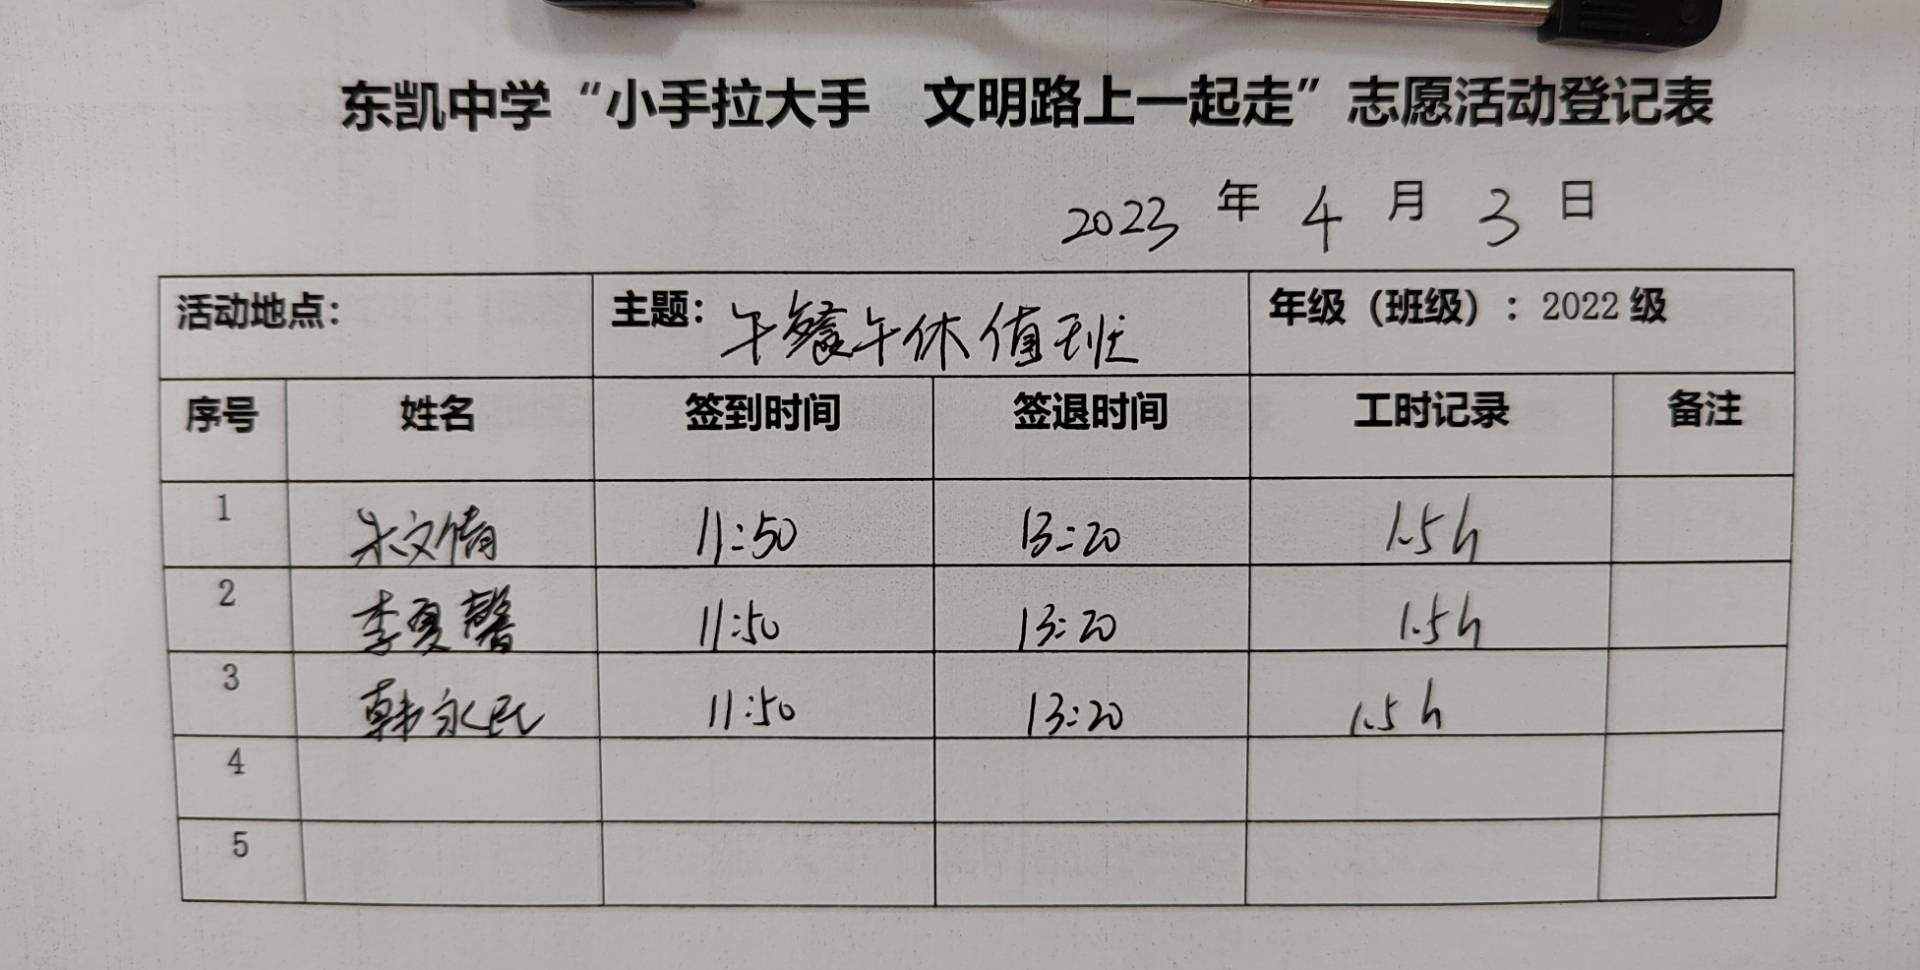 东凯中学“小手拉大手 文明路上一起走”志愿活动登记表
2023 年 4 月 3 日
活动地点： 主题：午餐午休值班 年级（班级）：2022 级
序号 姓名 签到时间 签退时间 工时记录 备注
1 朱文倩 11:50 13:20 1.5h
2 李夏馨 11:50 13:20 1.5h
3 韩永民 11:50 13:20 1.5h
4
5